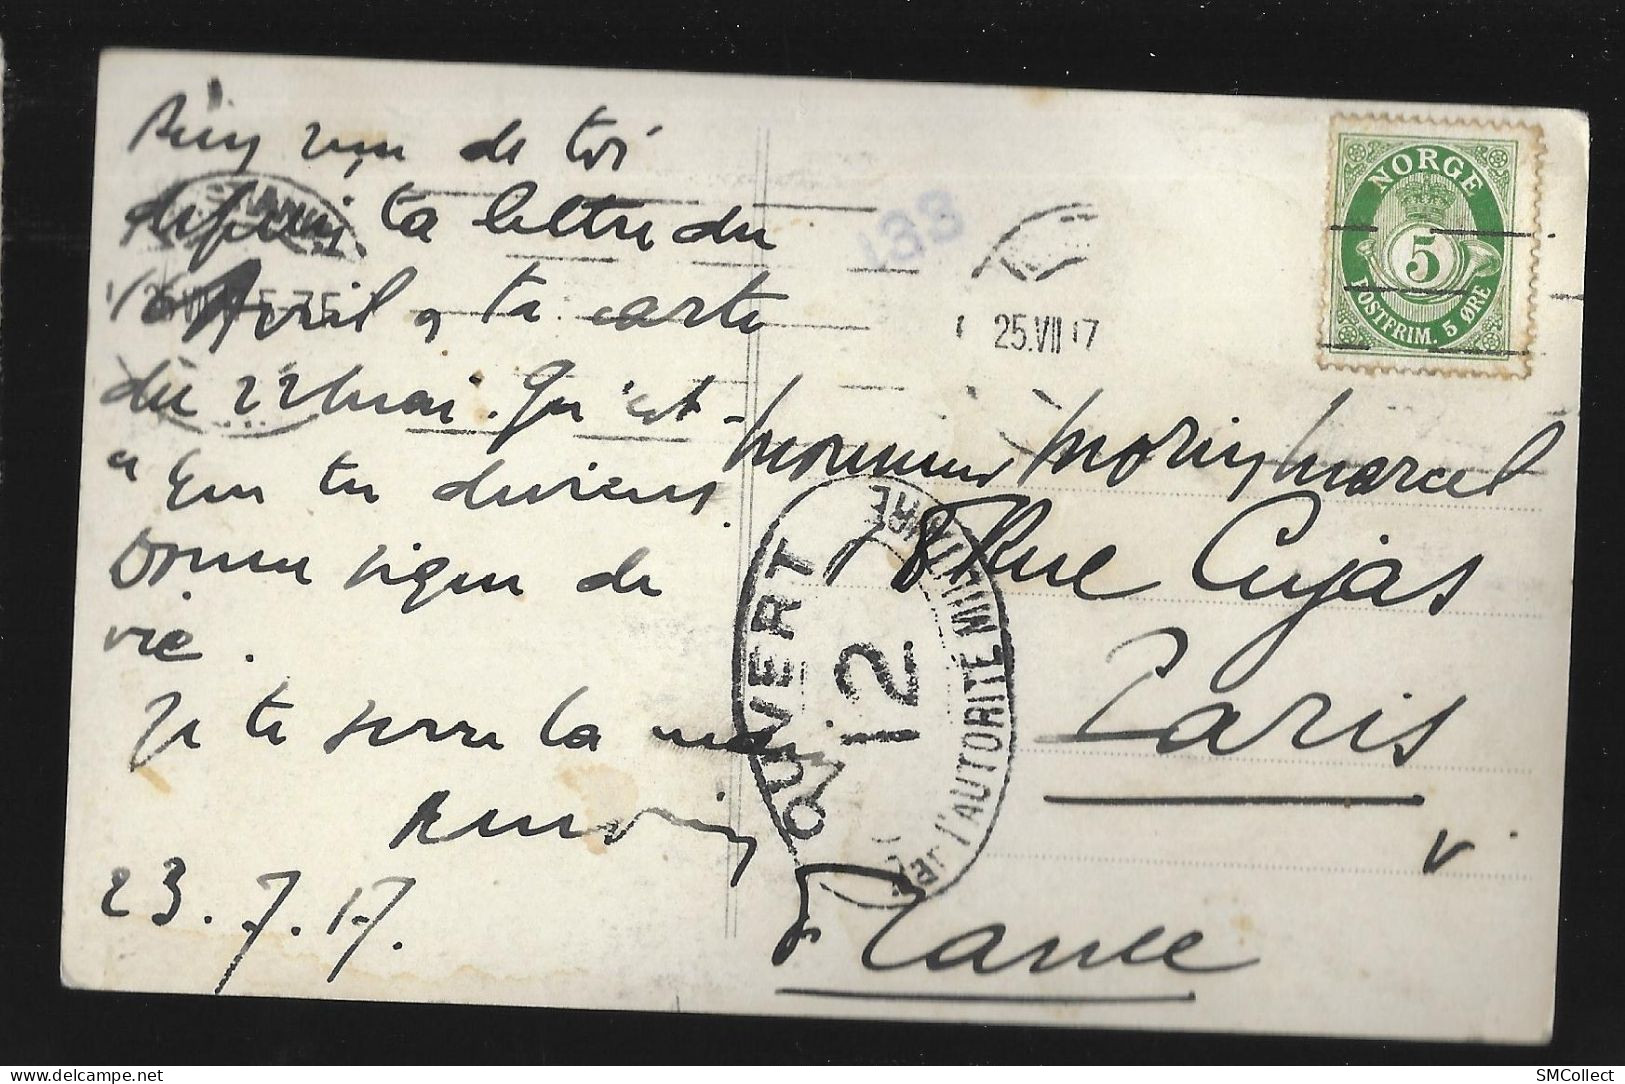 Rien reçu de toi
depuis ta lettre du
16 Avril & ta carte
du 22 mai. Qu'est-
ce que tu deviens.
Donne signe de
vie.
Je te serre la main
23.7.17.
133
25.VII 17
NORGE
5
POSTFRIM. 5 ØRE
Monsieur Morin Marcel
18 Rue Cujas
Paris
France
OUVERT
12
Par l'AUTORITE MILITAIRE
SMCollect